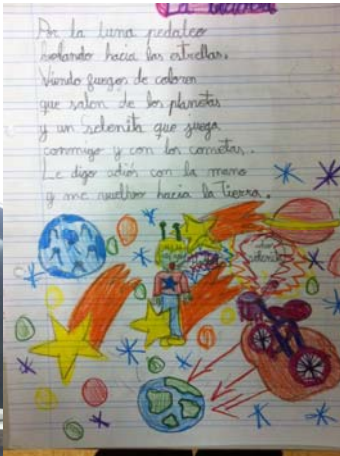 La
Por la luna pedaleo
volando hacia las estrellas.
Viendo fuegos de colores
que salen de los planetas
y un Selenita que juega
conmigo y con los cometas.
Le digo adiós con la mano
y me vuelvo hacia la Tierra.
adios
selenita